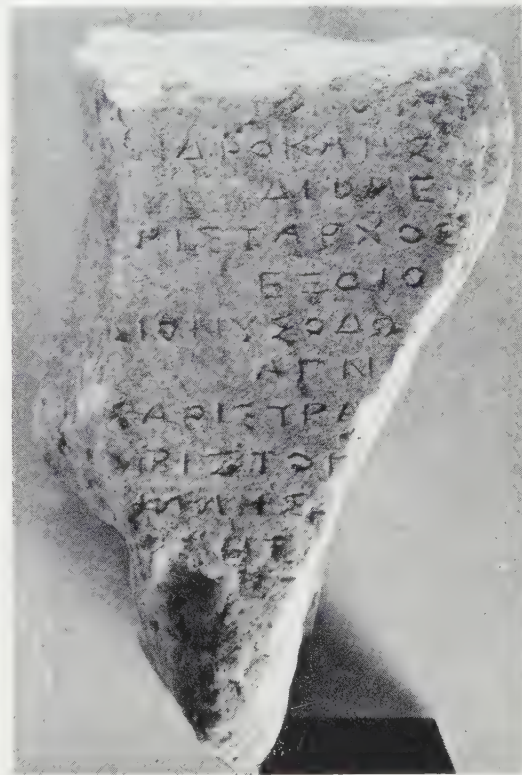 ΔΡΟΚΛΗΣ
ΔΙΟΜΕ
ΡΙΣΤΑΡΧΟΣ
ΕΞΟΙΟ
ΙΟΝΥΣΟΔΩ
ΑΓΝ
ΧΑΡΙΣΤΡΑ
ΑΡΙΣΤΟΓ
ΜΝΗΣ
ΗΓ